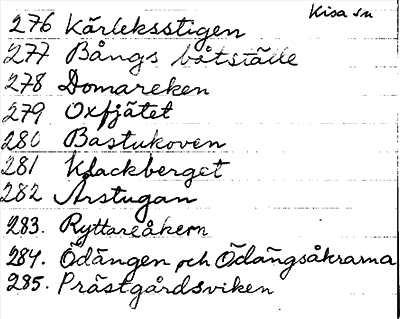 Kisa sn
276 Kärleksstigen
277 Bångs båtställe
278 Domareken
279 Oxfjätet
280 Bastukoven
281 Klackberget
282 Årstugan
283. Ryttareåkern
284. Ödängen och Ödängsåkrarna
285. Prästgårdsviken